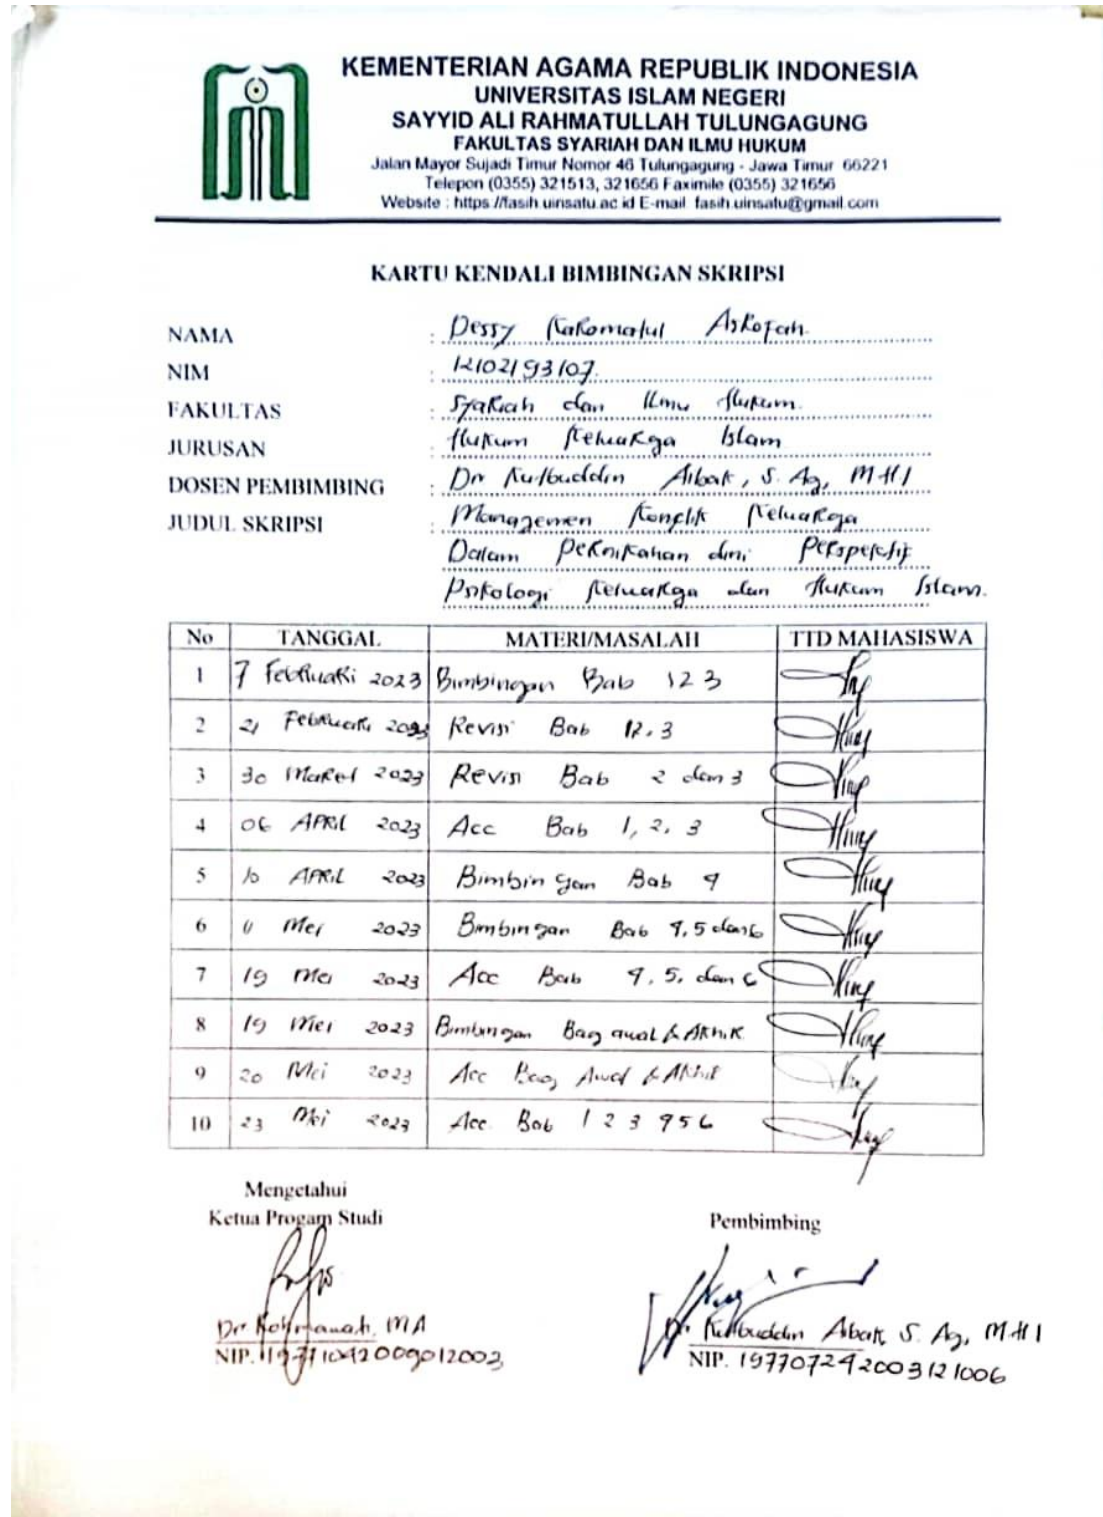 KEMENTERIAN AGAMA REPUBLIK INDONESIA
UNIVERSITAS ISLAM NEGERI
SAYYID ALI RAHMATULLAH TULUNGAGUNG
FAKULTAS SYARIAH DAN ILMU HUKUM
Jalan Mayor Sujadi Timur Nomor 46 Tulungagung - Jawa Timur 66221
Telepon (0355) 321513, 321656 Faximile (0355) 321656
Website : https://fasih.uinsatu.ac.id E-mail fasih.uinsatu@gmail.com
KARTU KENDALI BIMBINGAN SKRIPSI
NAMA : Dessy Karomatul Asrofah
NIM : 12102193107
FAKULTAS : Syariah dan Ilmu Hukum
JURUSAN : Hukum Keluarga Islam
DOSEN PEMBIMBING : Dr Kutbuddin Aibak, S. Ag, MHI
JUDUL SKRIPSI : Managemen Konflik Keluarga
Dalam Pernikahan dini Perspektif
Psikologi Keluarga dan Hukum Islam.
No TANGGAL MATERI/MASALAH TTD MAHASISWA
1 7 Februari 2023 Bimbingan Bab 1 2 3
2 21 Februari 2023 Revisi Bab 12.3
3 30 Maret 2023 Revisi Bab 2 dan 3
4 06 APRIL 2023 Acc Bab 1, 2, 3
5 10 APRIL 2023 Bimbingan Bab 4
6 11 Mei 2023 Bimbingan Bab 4,5 dan 6
7 19 Mei 2023 Acc Bab 4, 5, dan 6
8 19 Mei 2023 Bimbingan Bag awal & Akhir
9 20 Mei 2023 Acc Bag Awal & Akhir
10 23 Mei 2023 Acc Bab 1 2 3 4 5 6
Mengetahui
Ketua Progam Studi
Pembimbing
Dr. MA
NIP.
Dr. Kutbuddin Aibak, S. Ag, M.HI
NIP. 197707242003121006